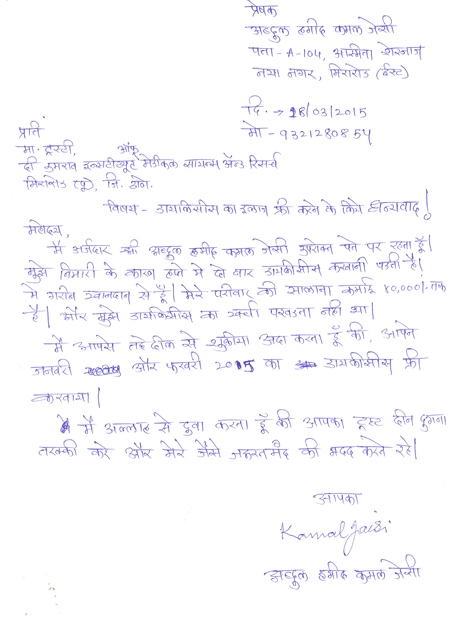 प्रेषक
अब्दुल हमीद कमल जेसी
पता - A-104, आस्मिता शेरबाज
नया नगर, मिरारोड (ईस्ट)
दि. → 18/03/2015
मो - 9321280854
प्रति
मा. ट्रस्टी,
दी उमराव इन्स्टीट्यूट ऑफ मेडीकल सायन्स अ‍ॅन्ड रिसर्च
मिरारोड (पू), जि. ठाणे.
विषय - डायलिसीस का इलाज फ्री करने के लिये धन्यवाद!
महोदय,
मै अर्जदार श्री अब्दुल हमीद कमल जेसी उपरोक्त पते पर रहता हूँ।
मुझे बिमारी के कारण हप्ते मे दो बार डायलीसीस करवानी पडती है।
मे गरीब खानदान से हूँ। मेरे परीवार की सालाना कमाई 40,000/- तक
है। और मुझे डायलिसीस का खर्चा परवडता नही था।
मै आपसे तहे दील से शुक्रीया अदा करता हूँ की, आपने
जनवरी और फरवरी 2015 का डायलीसीस फ्री
करवाया।
मै अल्लाह से दुवा करता हूँ की आपका ट्रस्ट दीन दुगना
तरक्की करे और मेरे जैसे जरुरतमंद की मदद करते रहे।
आपका
Kamal Jaisi
अब्दुल हमीद कमल जेसी